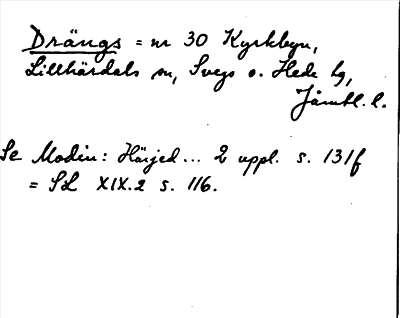 Drängs = nr 30 Kyrkbyn,
Lillhärdals sn, Svegs o. Hede hg,
Jämtl. l.
Se Modin: Härjed... 2 uppl. s. 131f
= SL XIX.2 s. 116.